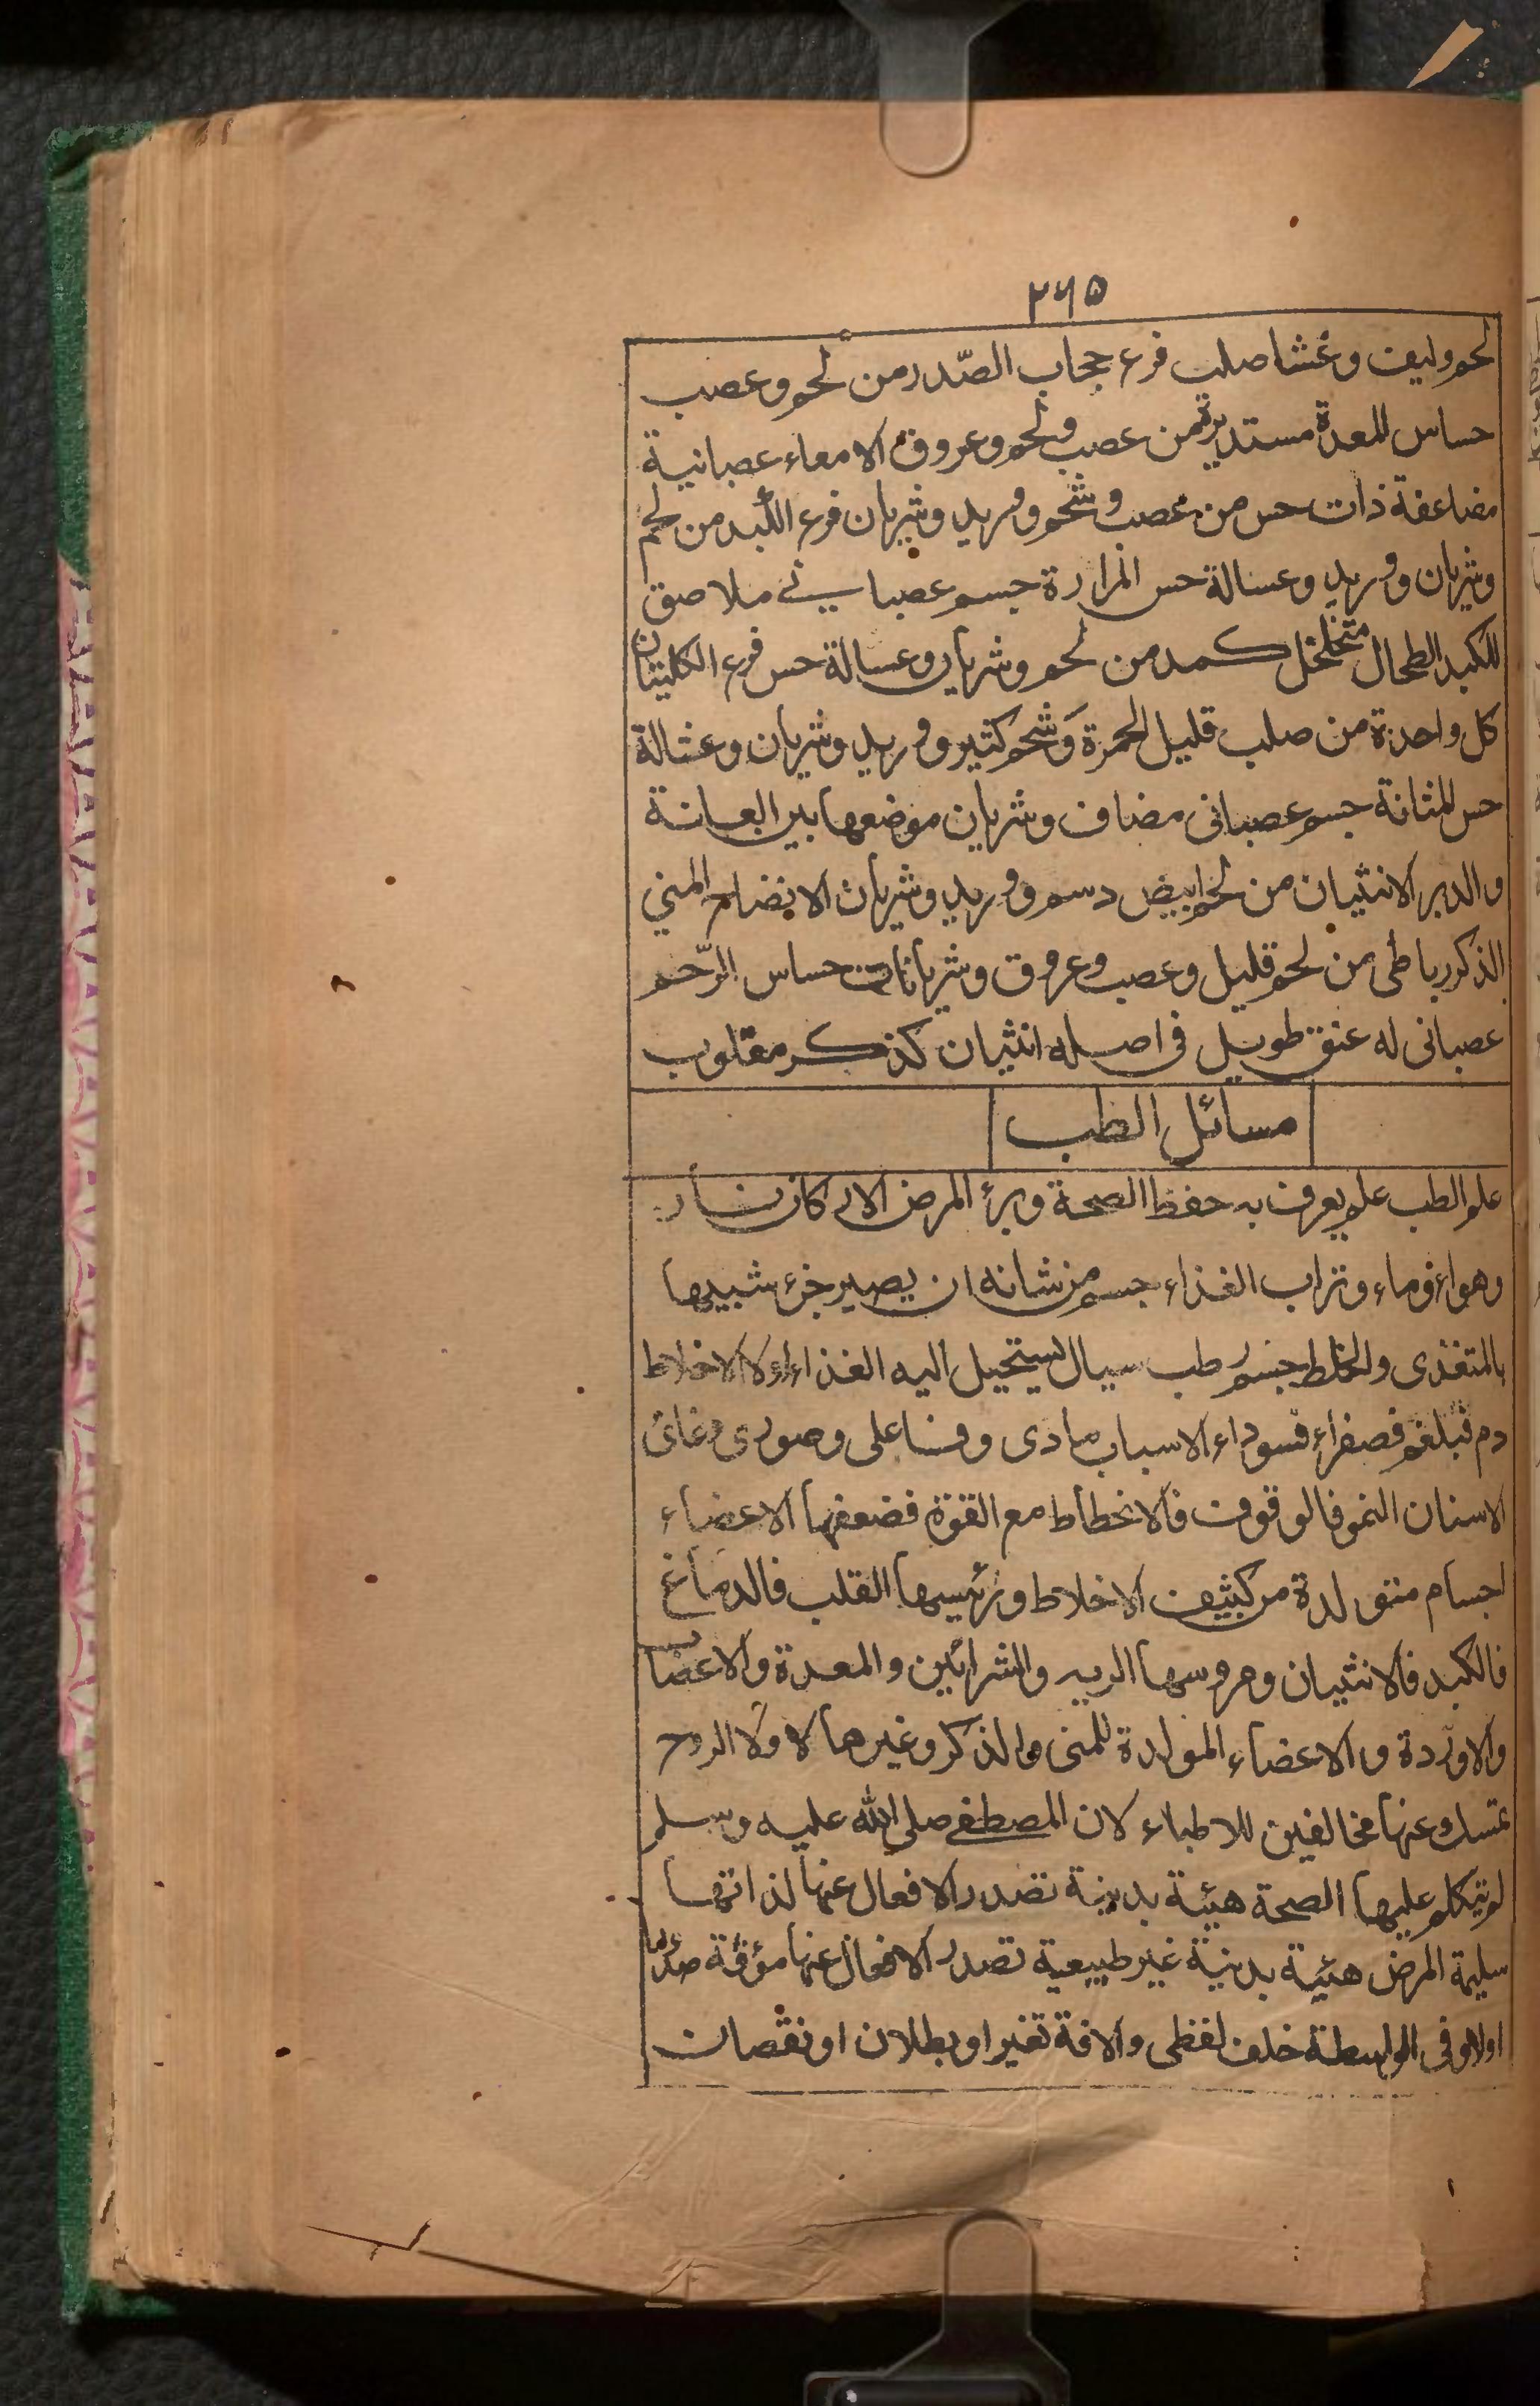 ٢٦٥
لحم وليف وغشا صلب فرع حجاب الصّدر من لحم وعصب
حساس المعدة مستديرة من عصب ولحم وعروق الامعاء عصبانية
مضاعفة ذات حس من عصب وشحم ووريد وشريان فرع الكبد من لحم
وشريان ووريد وعسالة حس المرارة جسم عصباني ملاصق
للكبد الطحال متخلخل كمد من لحم وشريان وعسالة حس فرع الكليتان
كل واحدة من صلب قليل الحمرة وَشحم كثير ووريد وشريان وعشالة
حس المثانة جسم عصبانى مضاف وشريان موضعها بين العانة
والدبر الانثيان من لحم ابيض دسم ووريد وشريان الانضاج المني
الذكر رباطى من لحم قليل وعصب وعروق وشريانات حساس الرّحم
عصبانى له عنق طويل فى اصله انثيان كذكر مقلوب
مسائل الطب
علم الطب علم يعرف به حفظ الصحة وبرأ المرض الاركان نار
وهواء وماء وتراب الغذاء جسم من شانه ان يصير جزء شبيها
بالمتغذى والخلط جسم رطب سيال يستحيل اليه الغذاء اولا الاخلاط
دم فبلغم فصفراء فسوداء الاسباب مادى وفاعلى وصورى وغائى
الاسنان النمو فالوقوف فالانحطاط مع القوة فضعفها الاعضاء
اجسام متولدة من كثيف الاخلاط ورئيسها القلب فالدماغ
فالكبد فالانثيان ومروسها الريه والشرائين والمعدة والاعضا
والاوردة والاعضاء المولدة للمنى والذكر وغيرها لا ولا الروح
نمسك عنها مخالفين للاطباء لان المصطفے صلى الله عليه وسلم
لم يتكلم عليها الصحة هيئة بدنية تصدر الافعال عنها لذاتها
سليمة المرض هيئة بدنية غير طبيعية تصدر الافعال عنها مؤفة صدرا
اولا وفى الواسطة خلف لفظى والافة تغير او بطلان او نقصان